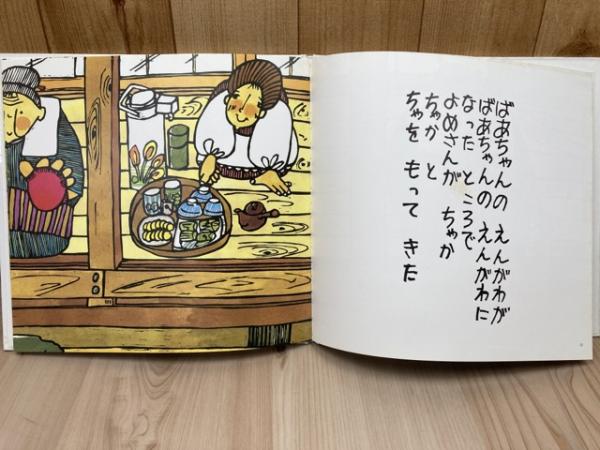 ばあちゃんの えんがわが
ばあちゃんの えんがわに
なった ところで
よめさんが ちゃか
ちゃか と
ちゃを もって きた